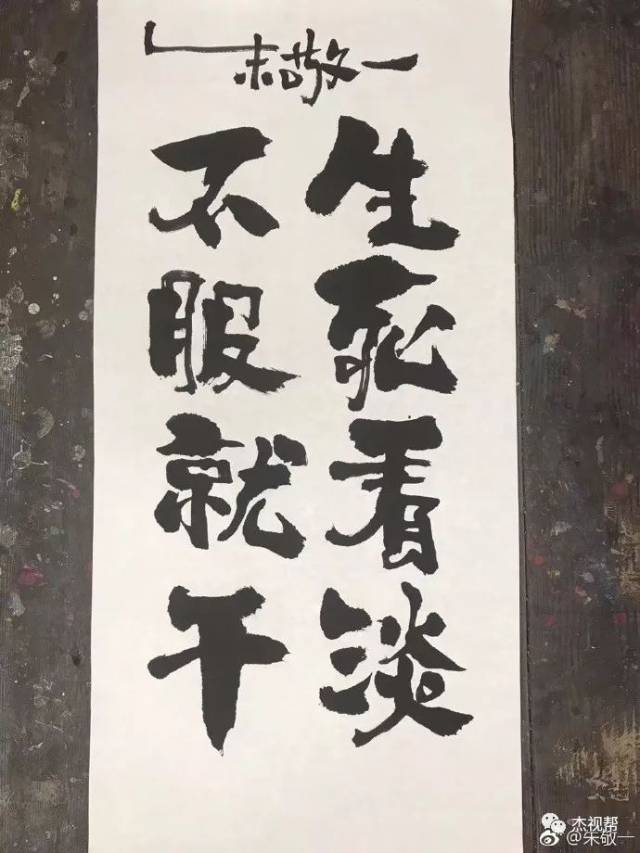 朱敬一
生死看淡
不服就干
杰视帮
@朱敬一